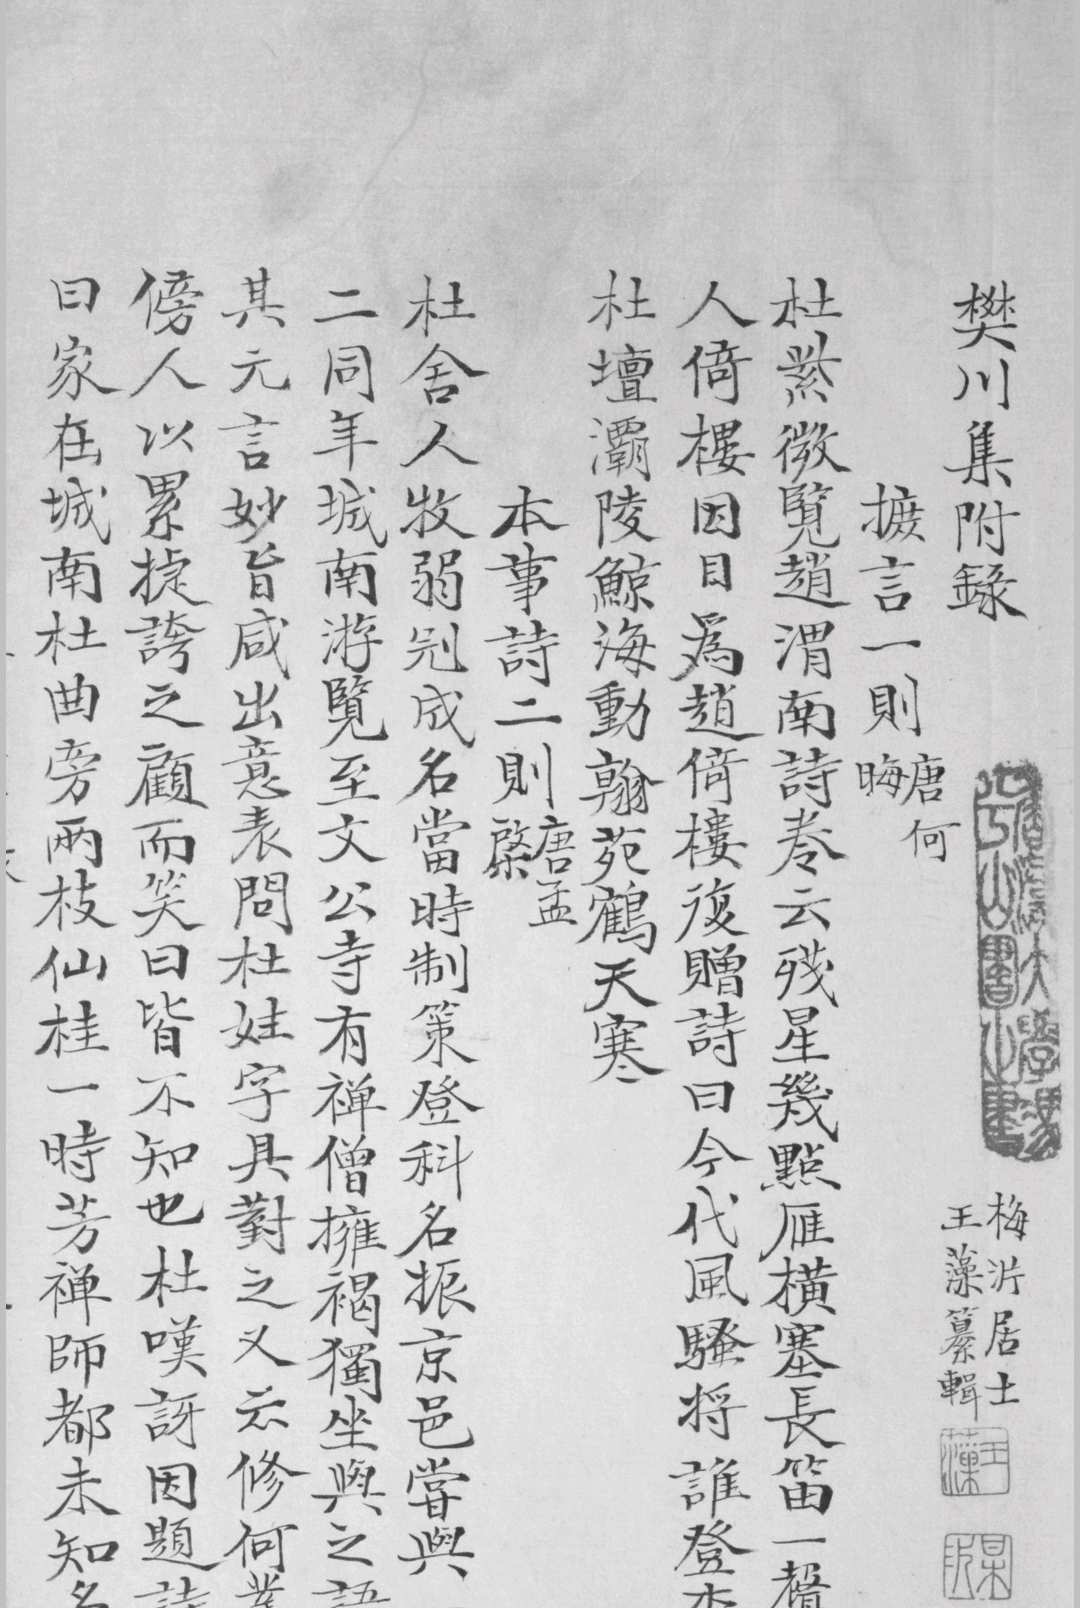 樊川集附錄
梅沜居士
王藻纂輯
摭言一則
唐何
晦
杜紫微覽趙渭南詩卷云殘星幾點雁橫塞長笛一聲
人倚樓因目爲趙倚樓復贈詩曰今代風騷将誰登李
杜壇灞陵鯨海動翰苑鶴天寒
本事詩二則
唐孟
棨
杜舍人牧弱冠成名當時制策登科名振京邑嘗與
二同年城南游覽至文公寺有禅僧擁褐獨坐與之語
其元言妙旨咸出意表問杜姓字具對之又云修何業
傍人以累捷誇之顧而笑曰皆不知也杜嘆訝因題詩
曰家在城南杜曲旁兩枝仙桂一時芳禅師都未知名